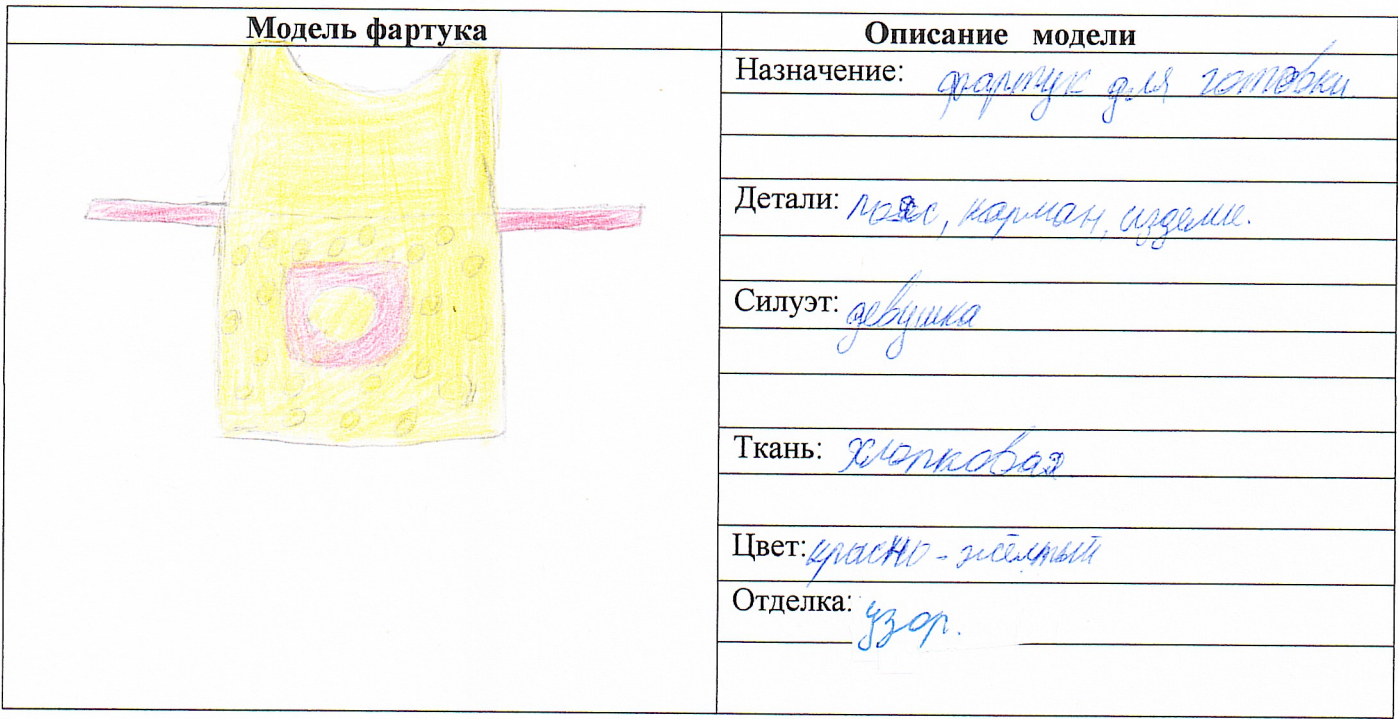 Модель фартука
Описание модели
Назначение: фартук для готовки.
Детали: пояс, карман, изделие.
Силуэт: девушка
Ткань: хлопковая
Цвет: красно-жёлтый
Отделка: узор.